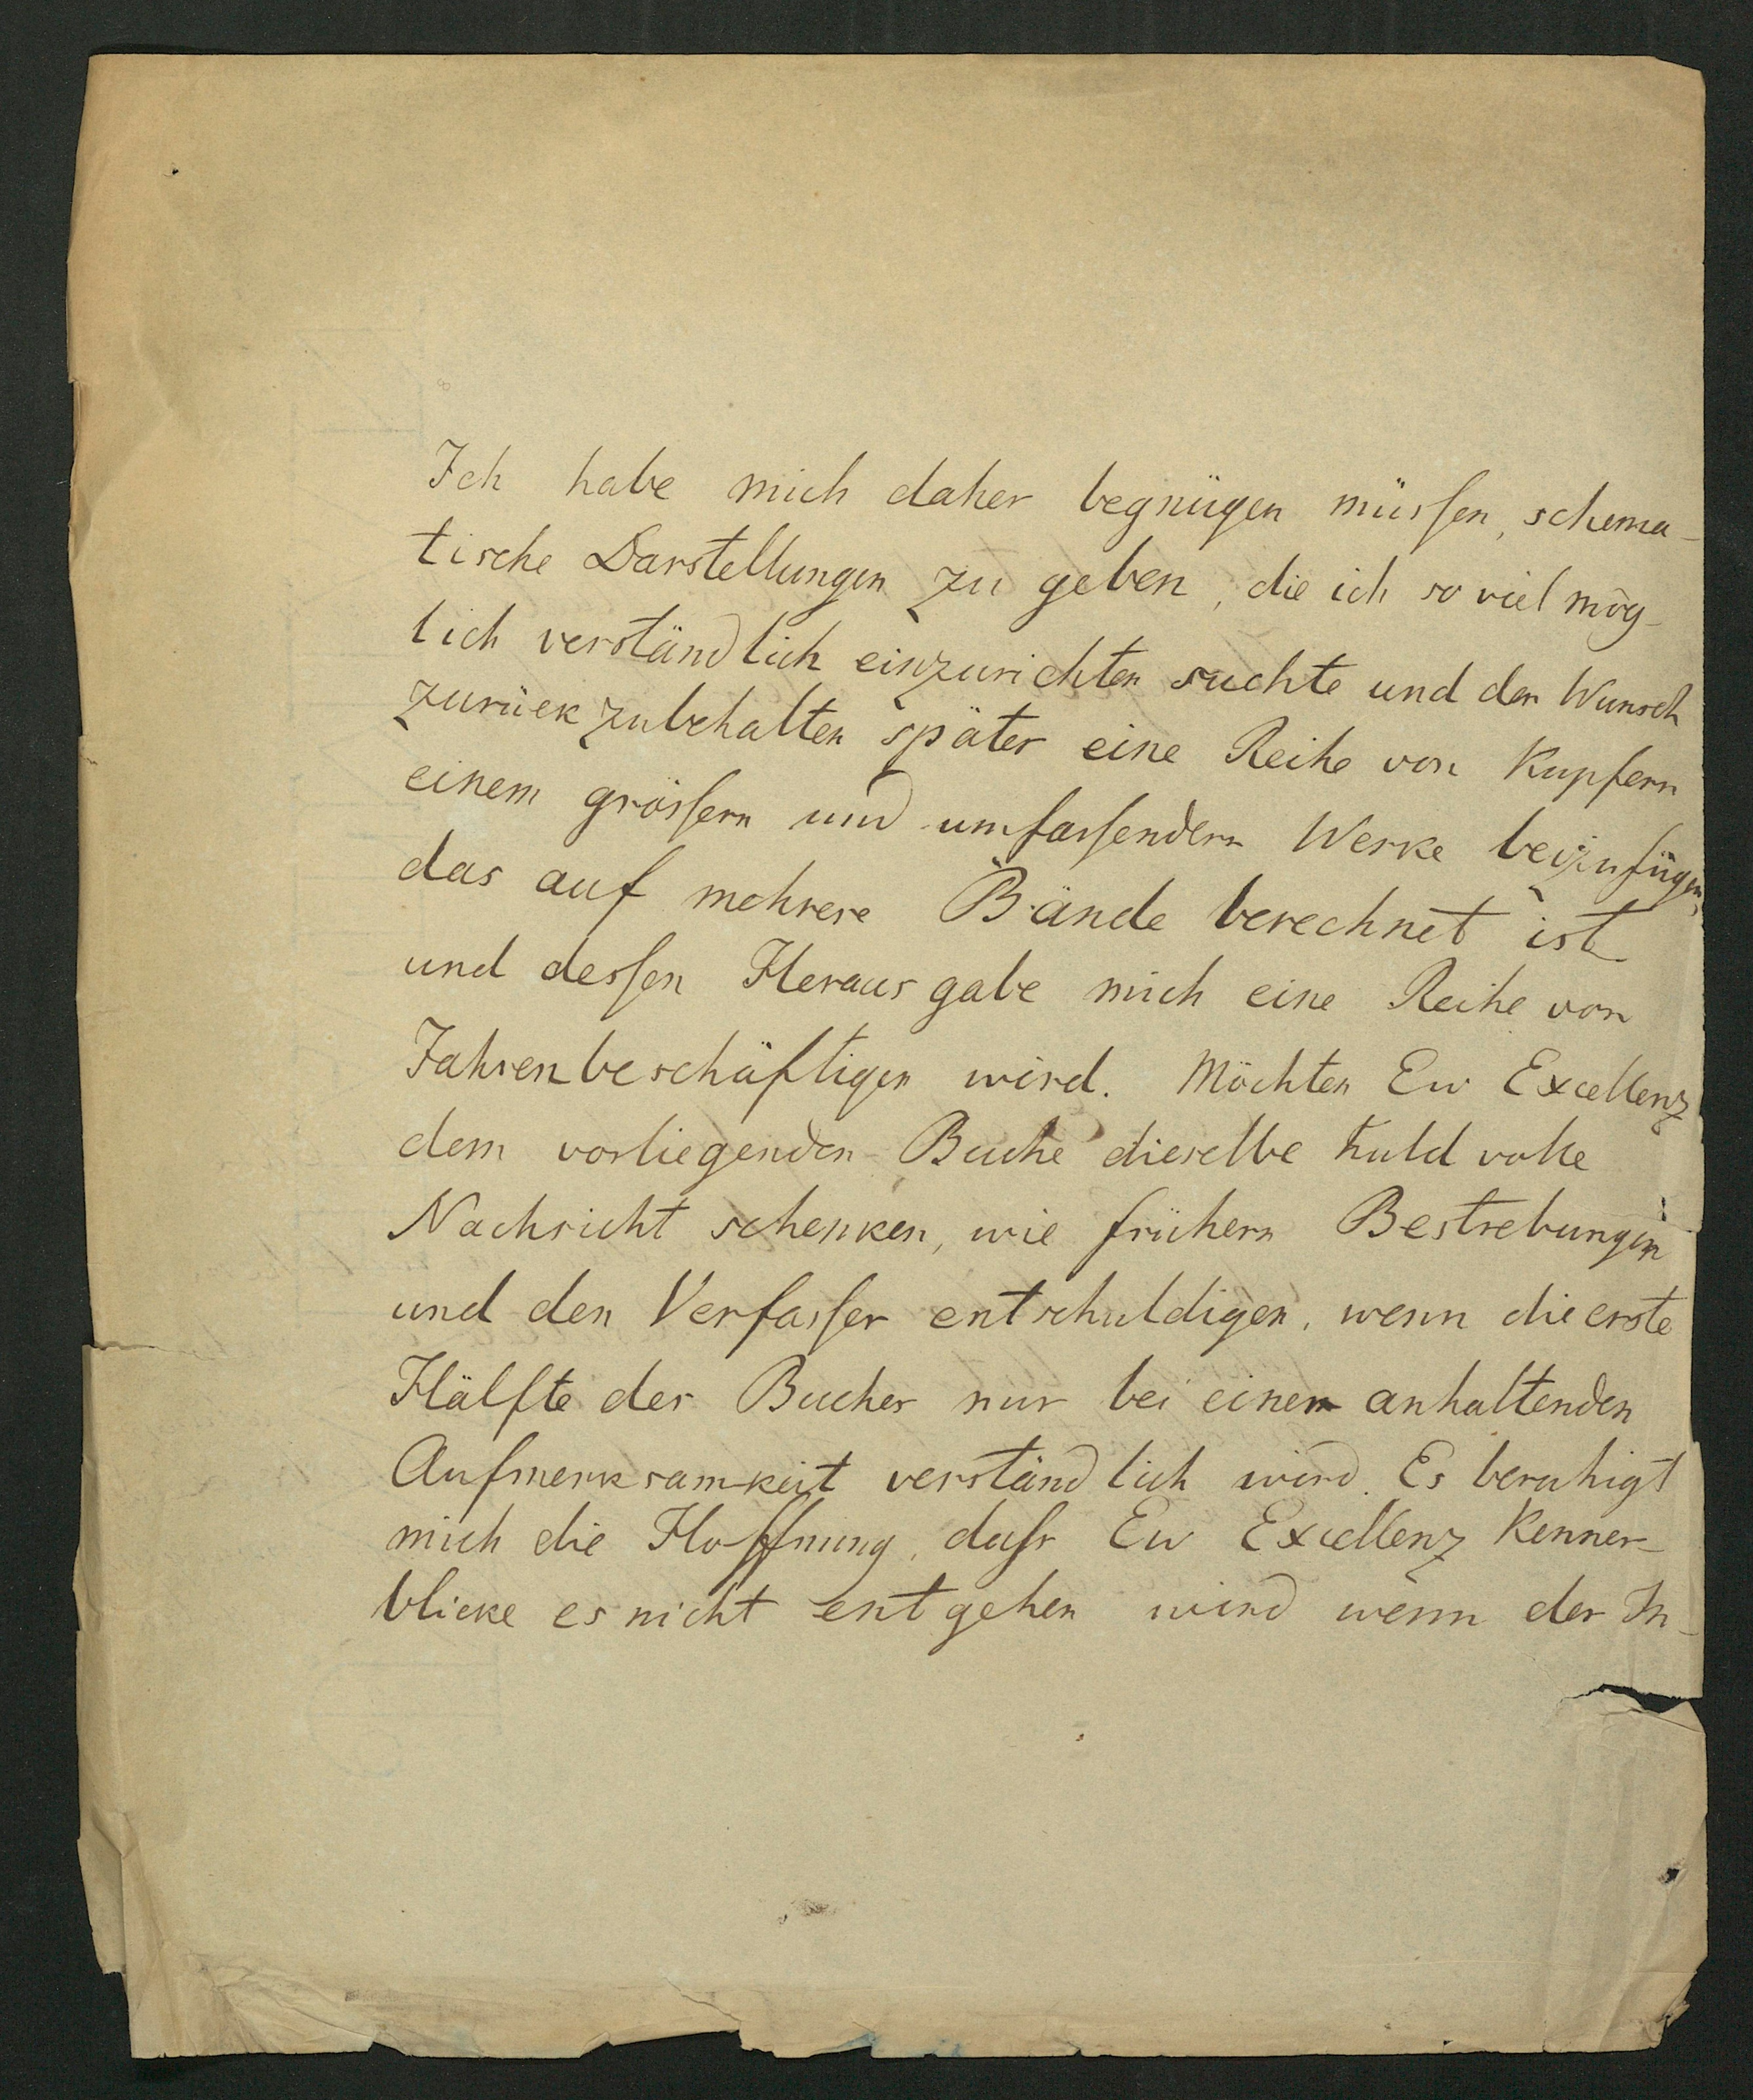 Ich habe mich daher begnügen müssen, schema-
tische Darstellungen zu geben, die ich so viel mög-
lich verständlich einzurichten suchte und den Wunsch
zurückzubehalten später eine Reihe von Kupfern
einem grössern und umfassendern Werke beizufügen,
das auf mehrere Bände berechnet ist
und dessen Herausgabe mich eine Reihe von
Jahren beschäftigen wird. Möchten Ew Excellenz
dem vorliegenden Buche dieselbe huldvolle
Nachsicht schenken, wie frühern Bestrebungen
und den Verfasser entschuldigen, wenn die erste
Hälfte des Buches nur bei einem anhaltenden
Aufmerksamkeit verständlich wird. Es beruhigt
mich die Hoffnung, dass Ew Excellenz Kenner-
blicke es nicht entgehen wird wenn der In-